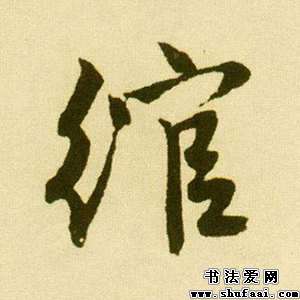 綰
书法爱网
www.shufaai.com